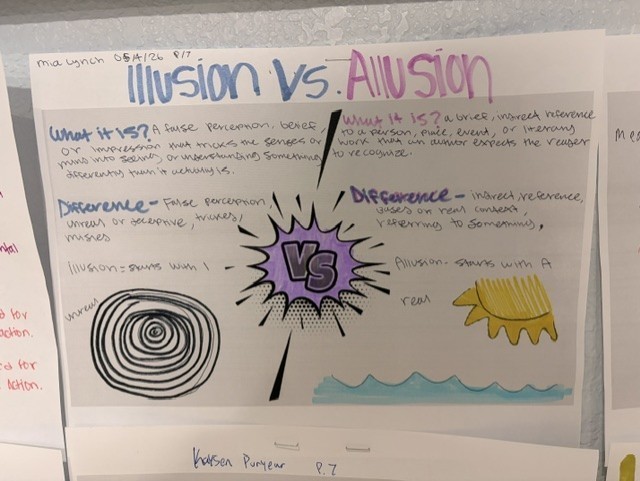 mia Lynch 05/4/26 P/7
Illusion Vs. Allusion
What it is? A false perception, belief,
or impression that tricks the senses or
mind into seeing or understanding something
differently than it actually is.
What it is? a brief, indirect reference
to a person, place, event, or literary
work that an author expects the reader
to recognize.
Difference - False perception,
unreal or deceptive, tricks,
Difference - indirect, reference,
on real context,
referring to something,
VS
Illusion = starts with I
unreal
Allusion - starts with A
real
Puryear P.7
ntal
d for
action.
ed for
Action.